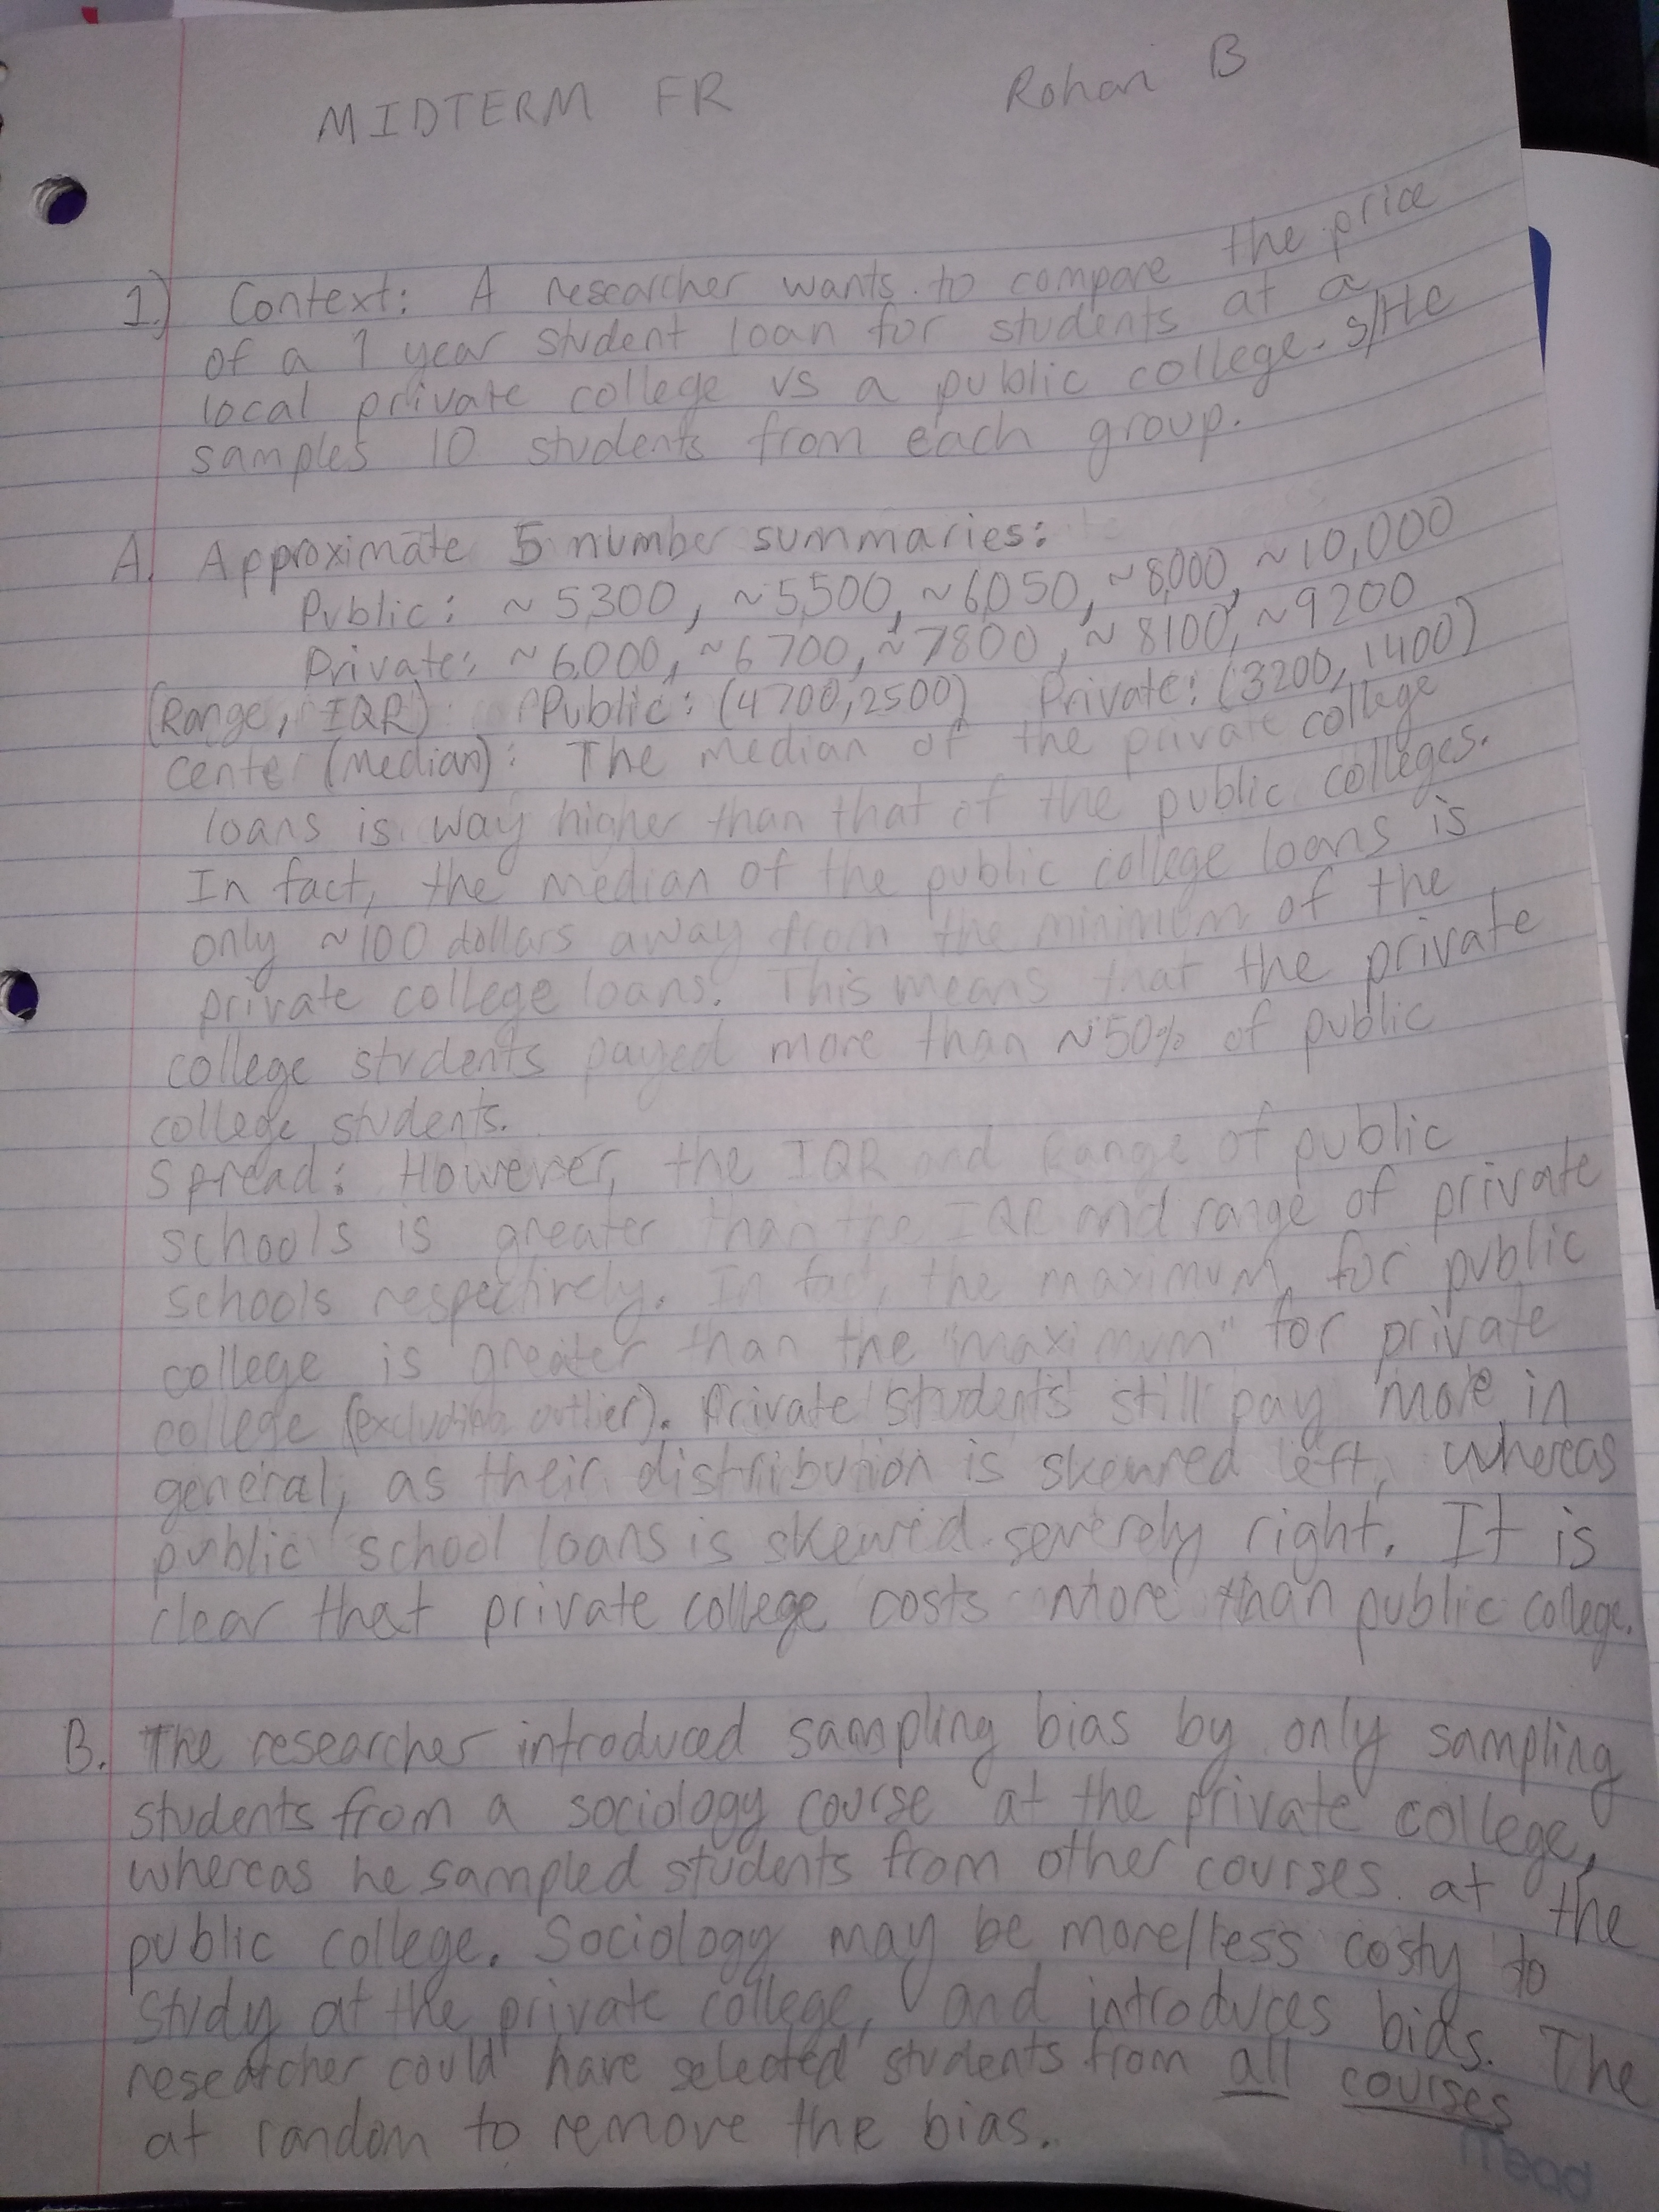 MIDTERM FR Rohan B
1.) Context: A researcher wants to compare the price
of a 1 year student loan for students at a
local private college vs a public college. s/He
samples 10 students from each group.
A. Approximate 5 number summaries:
Public: ~5300, ~5,500, ~6,050, ~8,000, ~10,000
Private: ~6,000, ~6700, ~7800, ~8100, ~9200
(Range, IQR) Public: (4700, 2500) Private: (3200, 1400)
Center (Median): The median of the private college
loans is way higher than that of the public colleges.
In fact, the median of the public college loans is
only ~100 dollars away from the minimum of the
private college loans. This means that the private
college students payed more than ~50% of public
college students.
Spread: However, the IQR and Range of public
schools is greater than the IQR and range of private
schools respectively. In fact, the maximum for public
college is greater than the "maximum" for private
college (excluding outlier). Private students still pay more in
general, as their distribution is skewed left, whereas
public school loans is skewed severely right. It is
clear that private college costs more than public college.
B. The researcher introduced sampling bias by only sampling
students from a sociology course at the private college,
whereas he sampled students from other courses at the
public college. Sociology may be more/less costy to
study at the private college, and introduces bias. The
researcher could have selected students from all courses
at random to remove the bias.
Mead